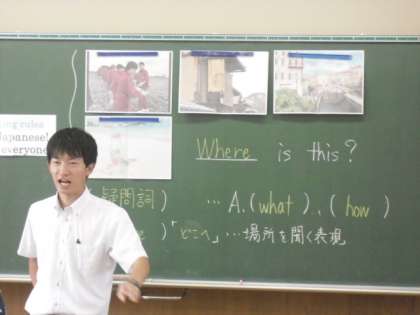 rules
Japanese!
everyone
Where is this?
疑問詞) … A.(what)、(how)
)「どこへ」…場所を聞く表現